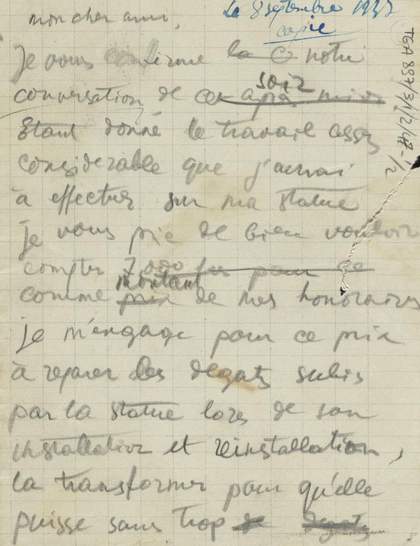 mon cher ami,
Le 8 septembre 1937
copie
TGA 897/3/1/2/48-1/2
Je vous confirme la C notre
soir
conversation de cet après midi
Etant donné le travail assez
considerable que j'aurai
à effectuer sur ma statue
je vous prie de bien vouloir
compter 7.000 frs pour ce
montant
comme prix de mes honoraires
je m'engage pour ce prix
à reparer des degats subis
par la statue lors de son
installation et reinstallation,
la transformer pour qu'elle
puisse sans trop de degats